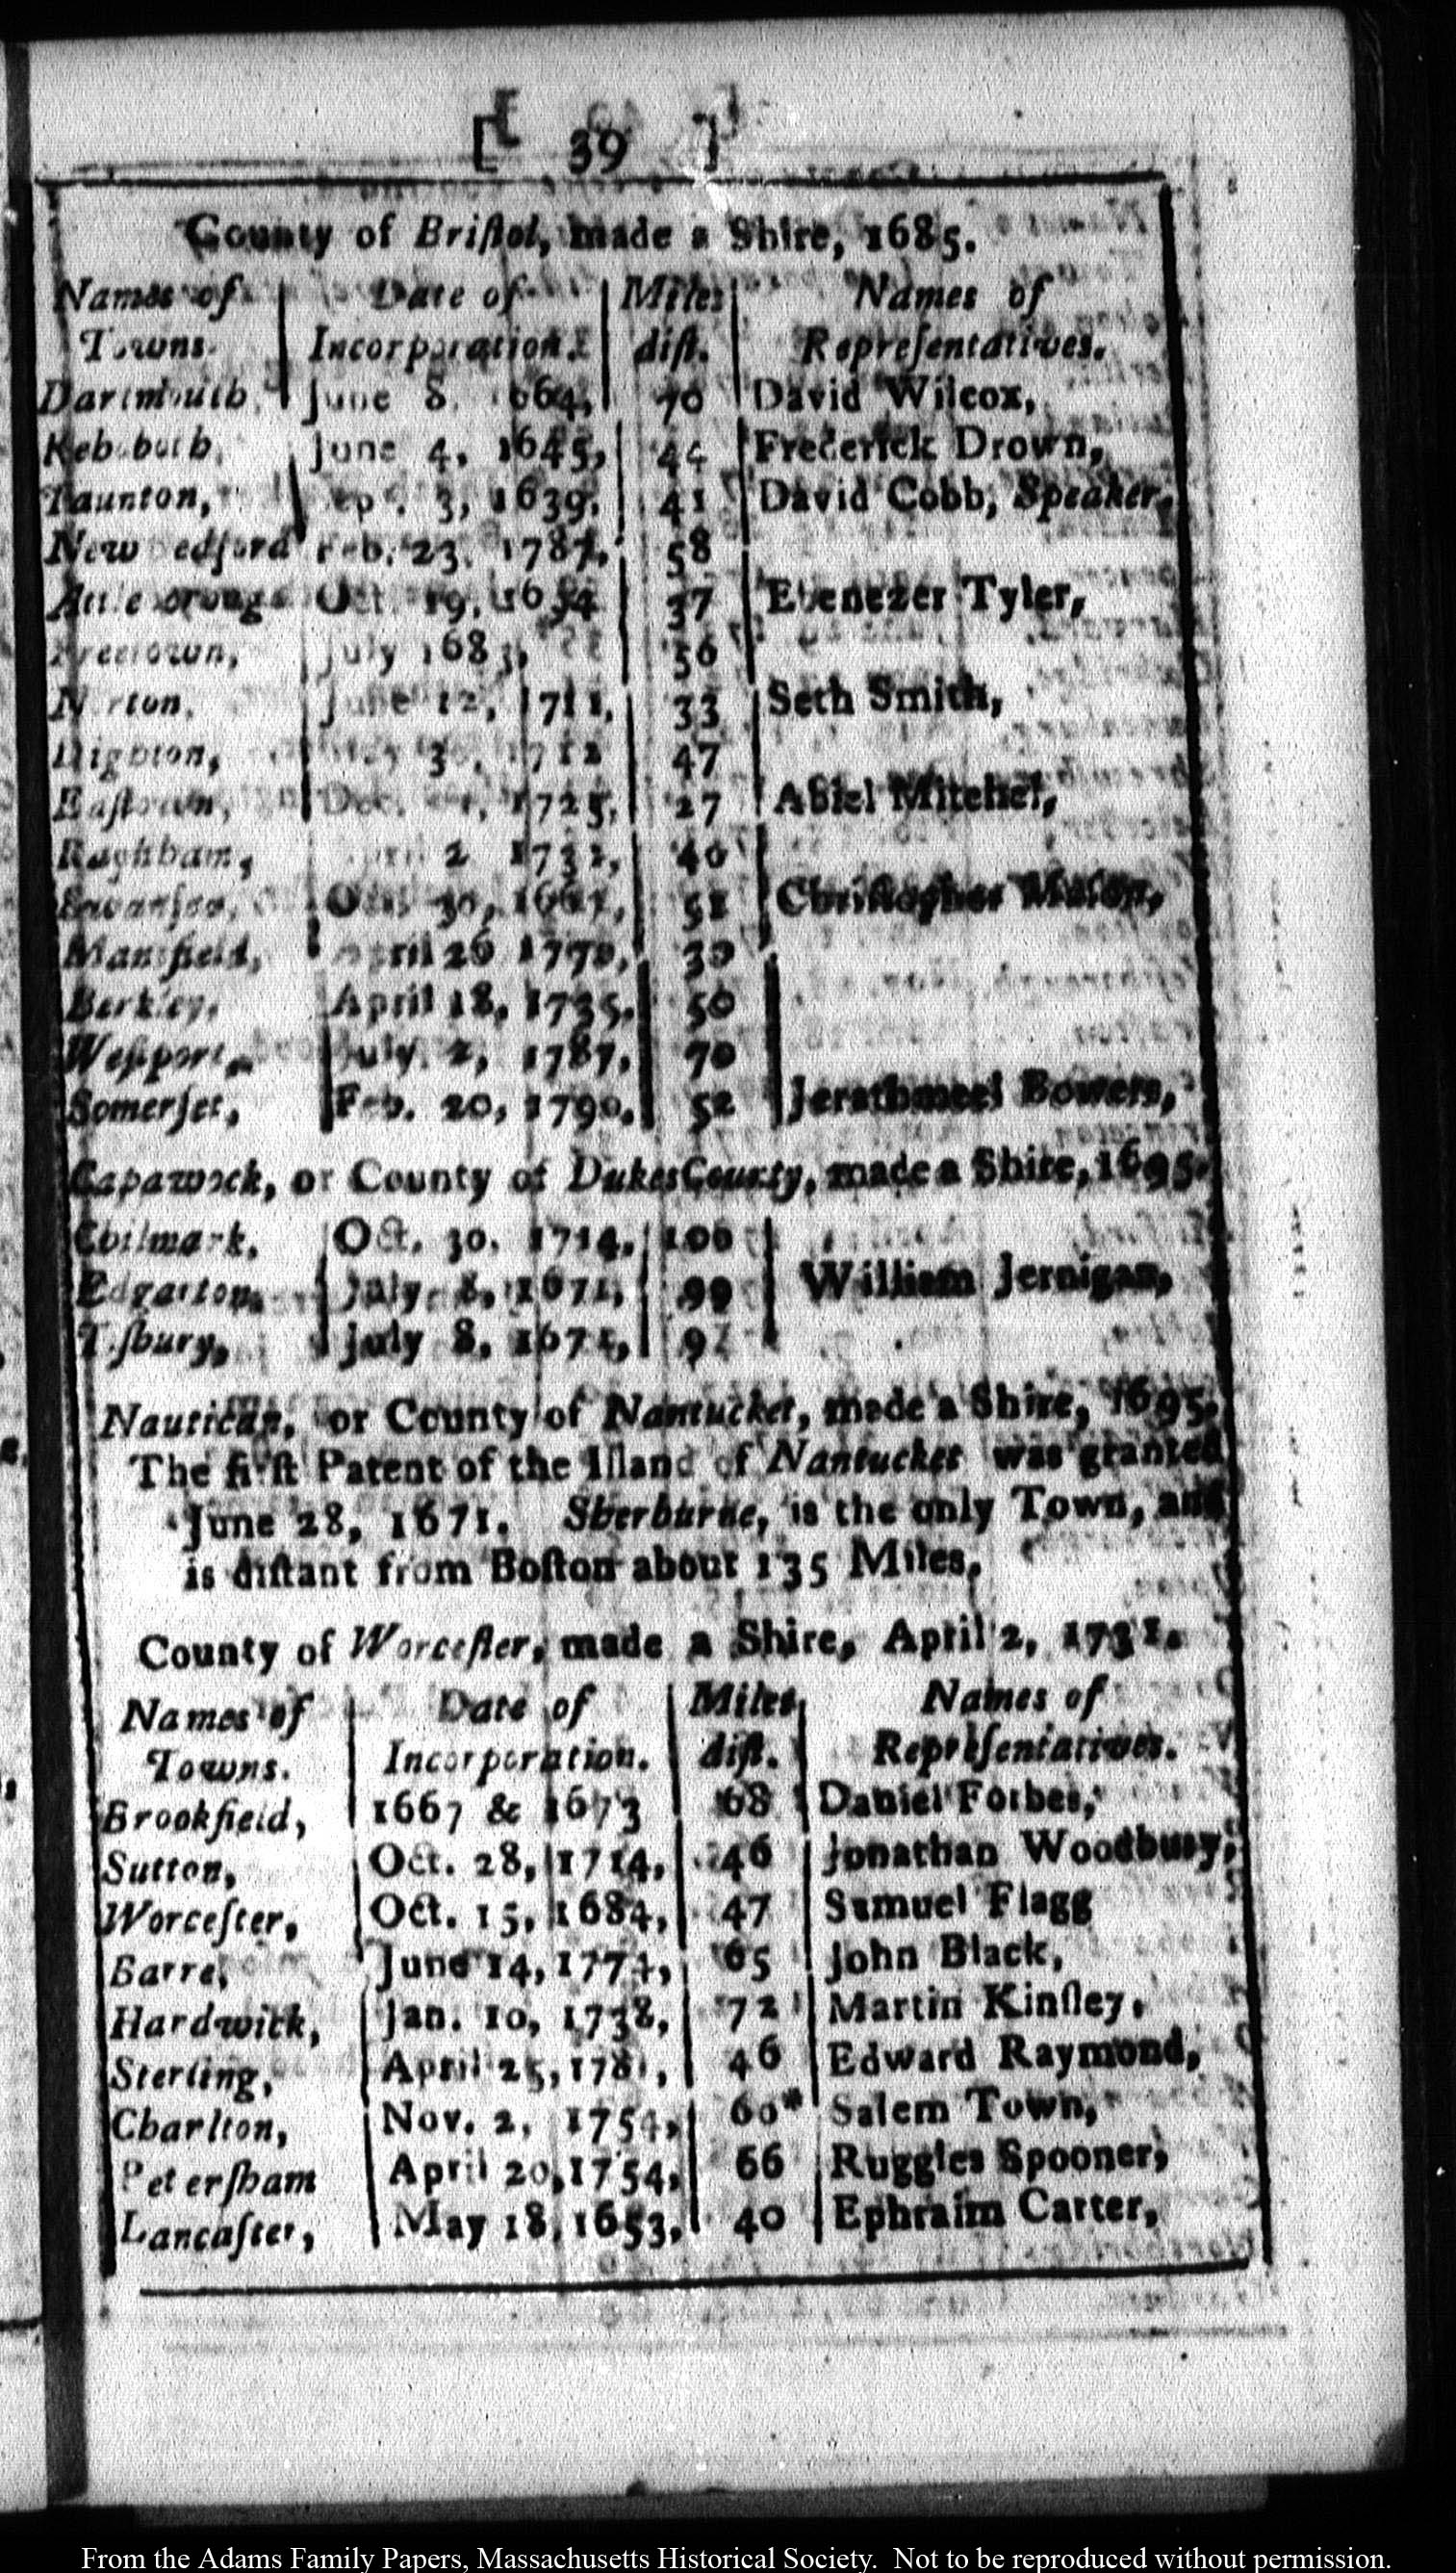 [ 39 ]
County of Briſtol, made a Shire, 1685.
Names of Date of Miles Names of
Towns. Incorporation. diſt. Repreſentatives.
Dartmouth, June 8, 1664, 70 David Wilcox,
June 4, 1645, 44 Frederick Drown,
Taunton, 3, 1639, 41 David Cobb, Speaker.
New Feb. 23, 1787, 58
Oct. 19, 37 Ebenezer Tyler,
Freetown, July 1683, 56
Norton, June 12, 1711, 33 Seth Smith,
Dighton, 1712 47
Dec. 1725, 27 Abiel Mitchel,
2 173 40
51 Chriſtopher Maſon,
Mansfield, April 26 177
Berkley, April 18, 1735, 50
Weſtport, July 2, 1787, 70
Somerſet, Feb. 20, 1790, 52 Jerathmeel Bowers,
Capawock, or County of Dukes County, made a Shire, 1695.
Chilmark, Oct. 30, 1714, 100
Edgarton, July 8, 1671, 99 William Jernigan,
Tiſbury, July 8, 1671,
Nautican, or County of Nantucket, made a Shire, 1695.
The firſt Patent of the Iſland of Nantucket was granted
June 28, 1671. Sherburne, is the only Town, and
is diſtant from Boſton about 135 Miles.
County of Worceſter, made a Shire, April 2, 1731.
Names of Date of Miles Names of
Towns. Incorporation. diſt. Repreſentatives.
Brookfield, 1667 & 1673 68 Daniel Forbes,
Sutton, Oct. 28, 1714, 46 Jonathan Woodbury,
Worceſter, Oct. 15, 1684, 47 Samuel Flagg
Barre, June 14, 1774, 65 John Black,
Hardwick, Jan. 10, 1738, 72 Martin Kinſley,
Sterling, April 25, 1781, 46 Edward Raymond,
Charlton, Nov. 2, 1754, 60* Salem Town,
Peterſham April 20, 1754, 66 Ruggles Spooner,
Lancaſter, May 18, 1653, 40 Ephraim Carter,
From the Adams Family Papers, Massachusetts Historical Society. Not to be reproduced without permission.